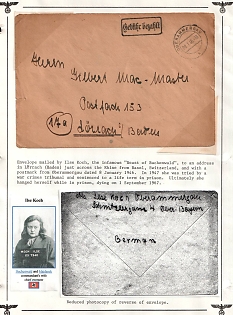 Gebühr bezahlt
OBERAMMERGAU
Herrn Herbert Mac-Master
Postfach 153
17a Lörrach / Baden
Envelope mailed by Ilse Koch, the infamous "Beast of Buchenwald", to an address
in Lörrach (Baden) just across the Rhine from Basel, Switzerland, and with a
postmark from Oberammergau dated 8 January 1946. In 1947 she was tried by a
war crimes tribunal and sentenced to a life term in prison. Ultimately she
hanged herself while in prison, dying on 1 September 1967.
Ilse Koch
Buchenwald and Majdanek
commandant's wife
Ilse Koch Oberammergau
German
Reduced photocopy of reverse of envelope.